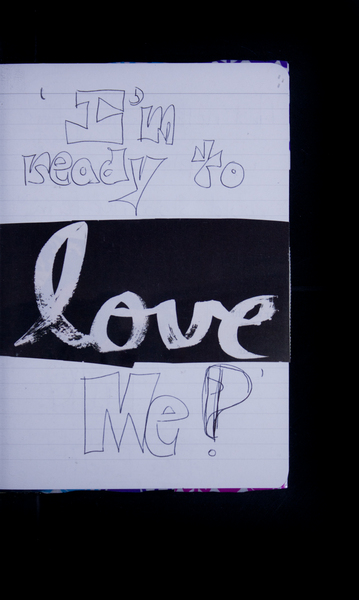 'I'm
ready to
love
Me!?'